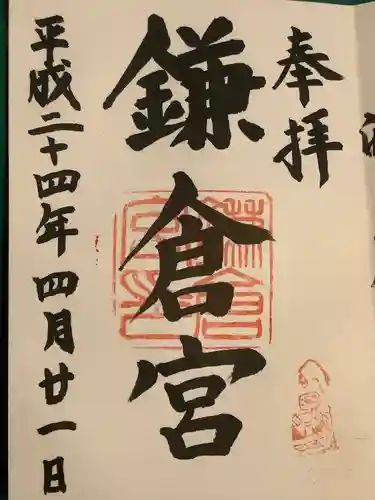 奉拝
鎌倉宮
平成二十四年四月廿一日